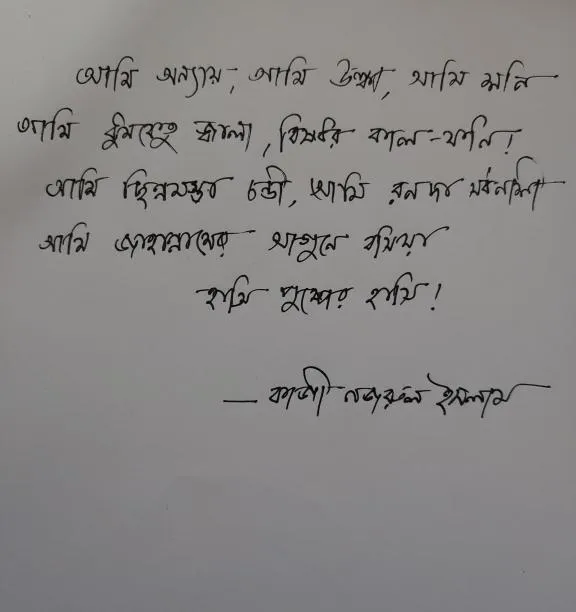 আমি অন্যায়, আমি উল্কা, আমি শনি
আমি ধুমকেতু জ্বালা, বিষধর কাল-ফনি!
আমি ছিন্নমস্তা চন্ডী, আমি রনদা সর্বনাশী
আমি জাহান্নামের আগুনে বসিয়া
হাসি পুষ্পের হাসি!
— কাজী নজরুল ইসলাম